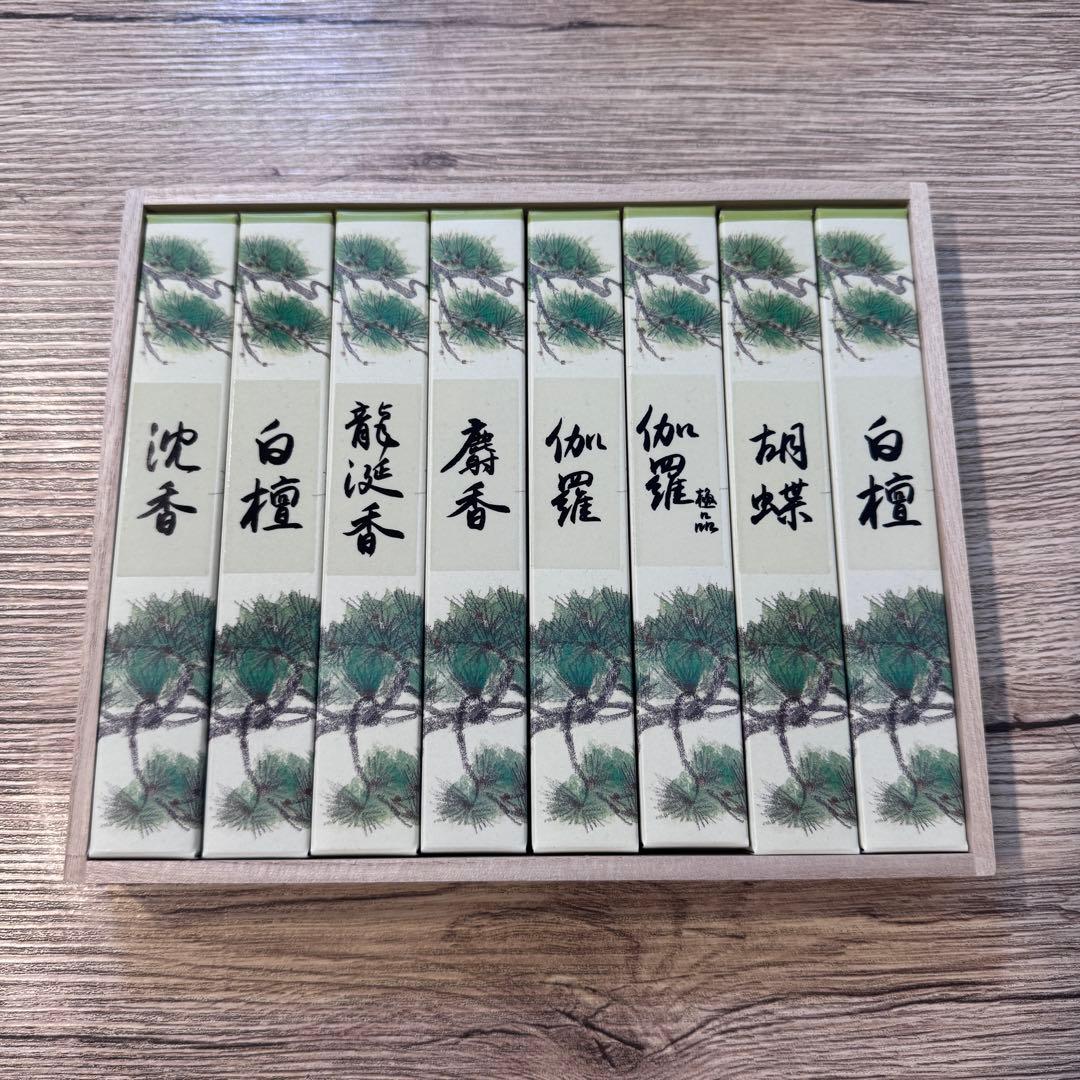 沈香
白檀
龍涎香
麝香
伽羅
伽羅 極品
胡蝶
白檀